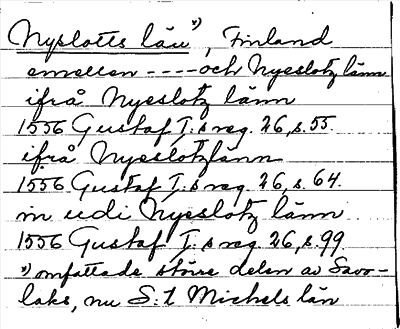 Nyslotts län ¹), Finland
emellen ---- och Nyeslotz länn
ifrå Nyeslotz länn
1556 Gustaf I:s reg. 26, s. 55.
ifrå Nyeslotzlänn
1556 Gustaf I:s reg. 26, s. 64.
in udi Nyeslotz länn
1556 Gustaf I:s reg. 26, s. 99
¹) omfattade större delen av Savo-
laks, nu S:t Michels län